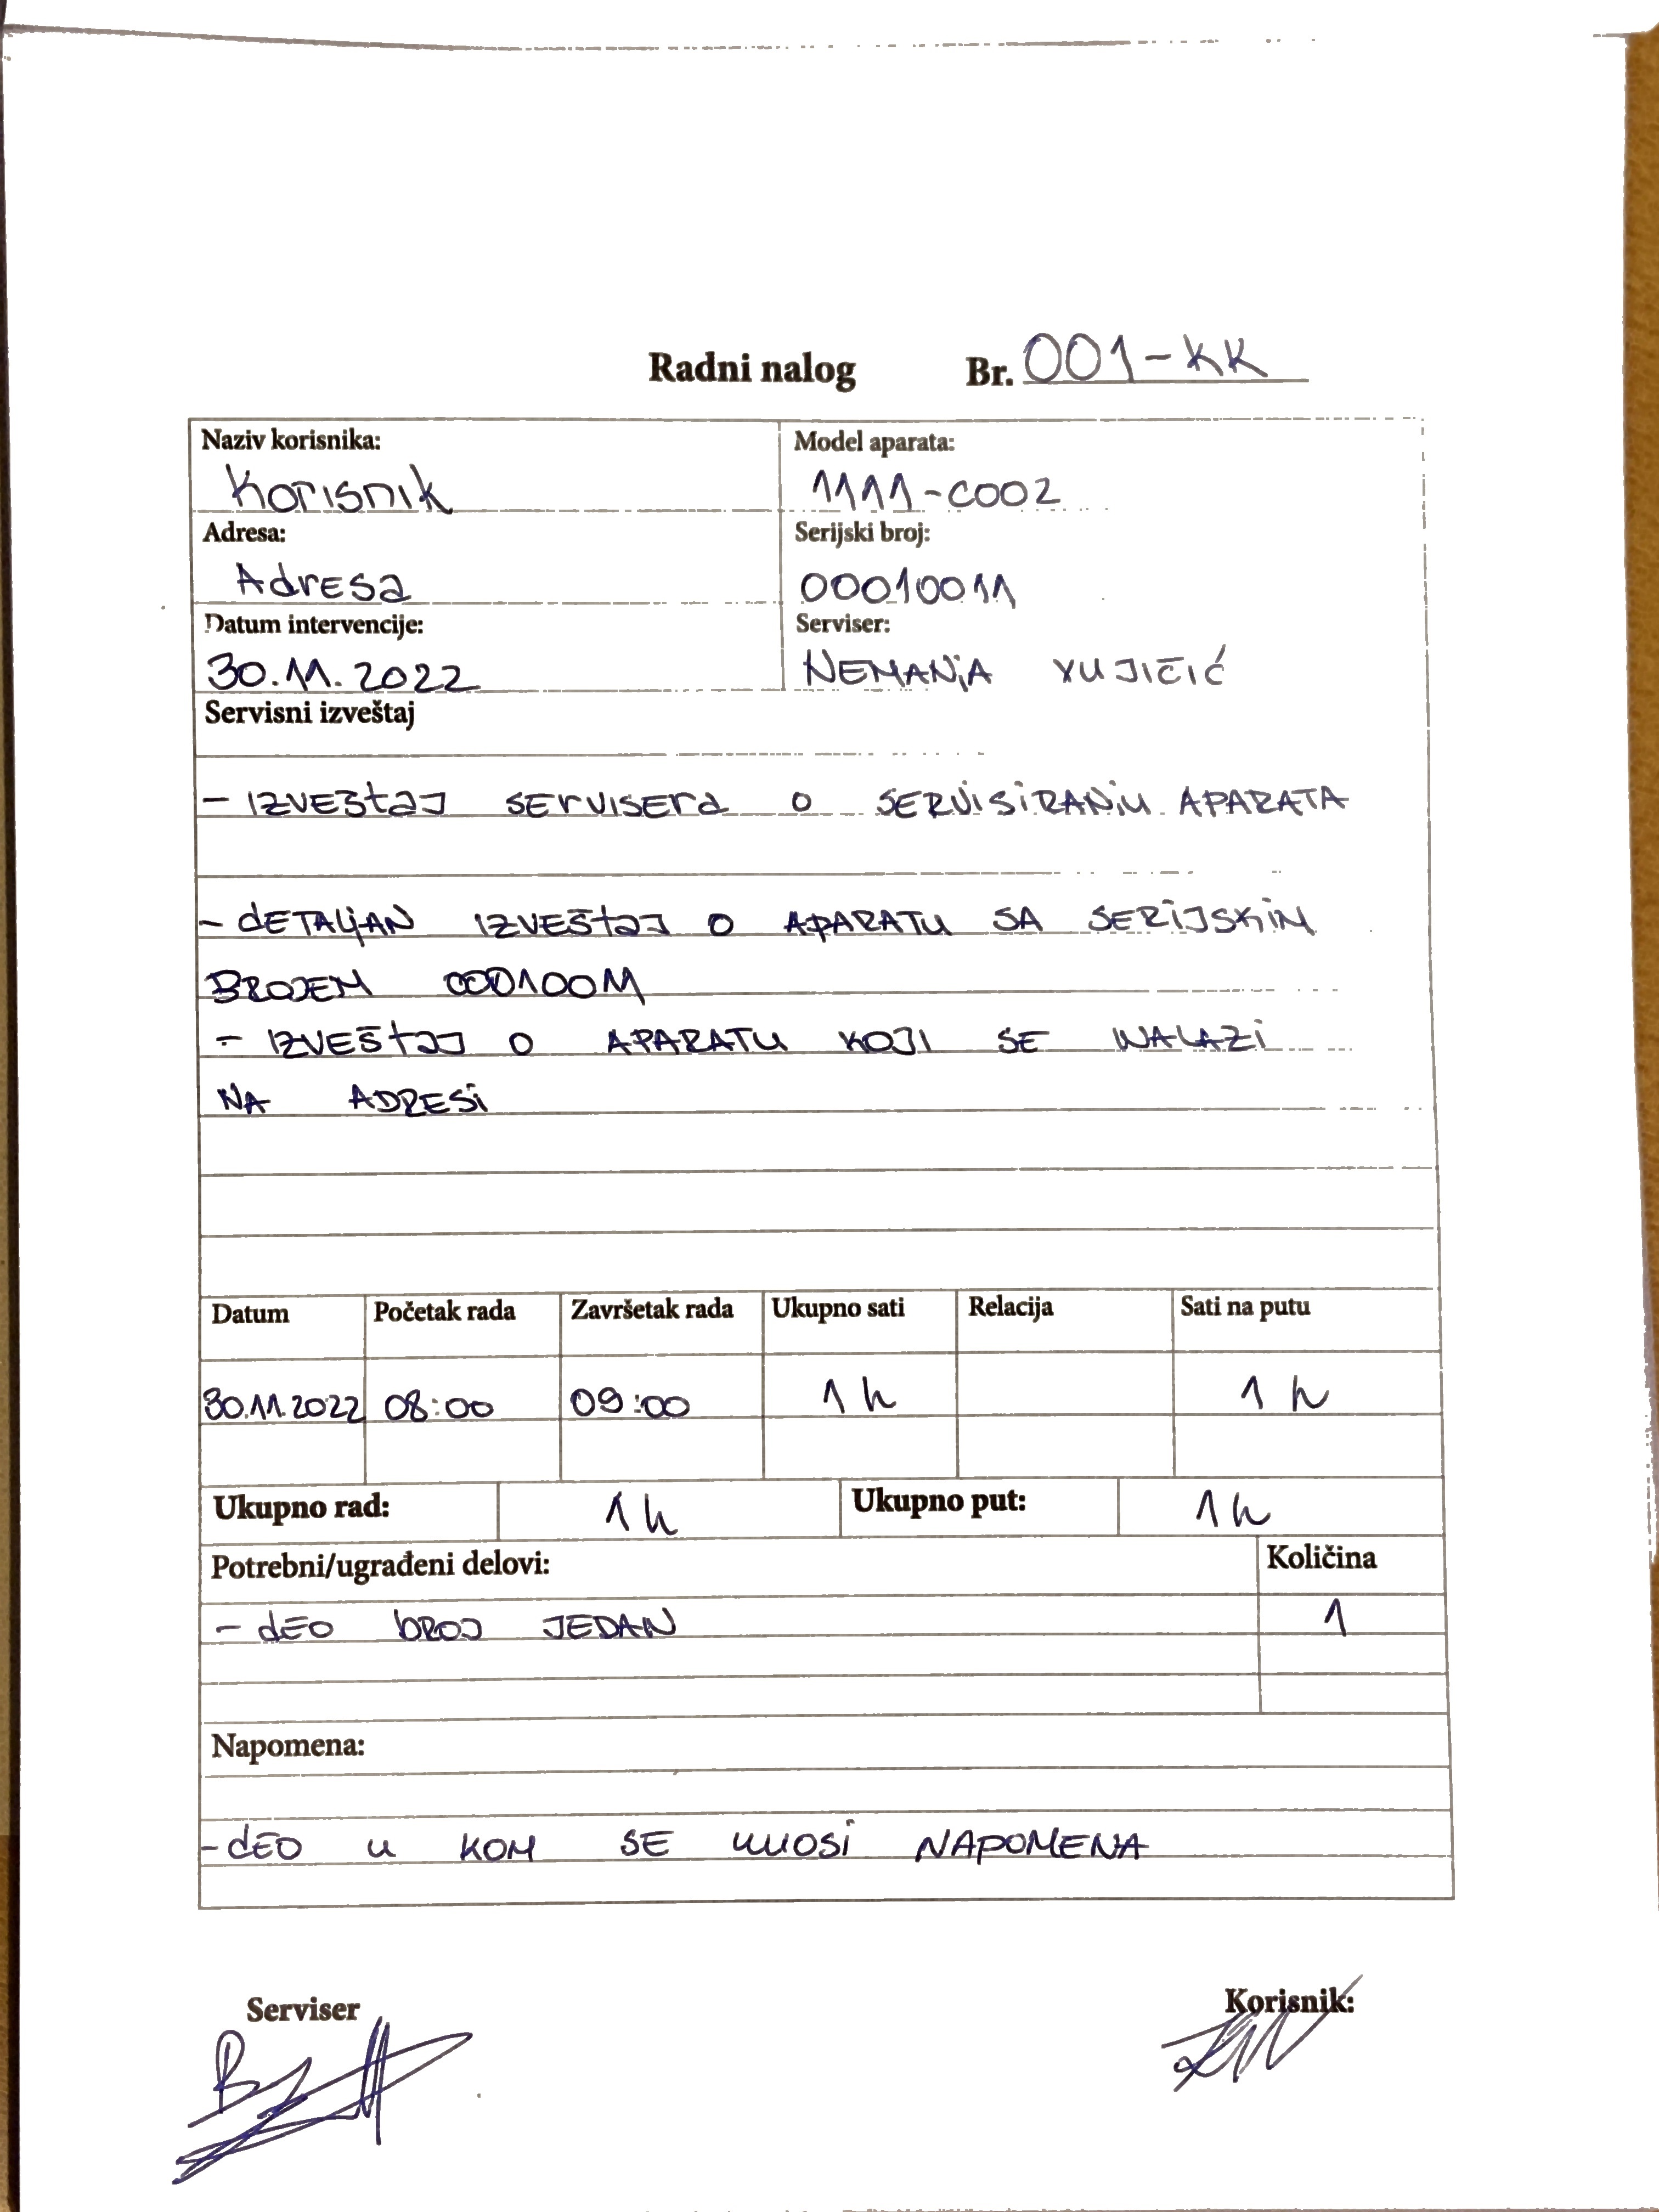 Radni nalog Br. 001-KK
Naziv korisnika: Model aparata:
Korisnik 1111-C002
Adresa: Serijski broj:
Adresa 00010011
Datum intervencije: Serviser:
30.11.2022 NEMANJA VUJIČIĆ
Servisni izveštaj
- IZVEŠTAJ SERVISERA O SERVISIRANJU APARATA
- DETALJAN IZVEŠTAJ O APARATU SA SERIJSKIM
BROJEM 00010011
- IZVEŠTAJ O APARATU KOJI SE NALAZI
NA ADRESI
Datum Početak rada Završetak rada Ukupno sati Relacija Sati na putu
30.11.2022 08:00 09:00 1 h 1 h
Ukupno rad: 1 h Ukupno put: 1 h
Potrebni/ugrađeni delovi: Količina
- DEO BROJ JEDAN 1
Napomena:
- DEO U KOM SE UNOSI NAPOMENA
Serviser Korisnik: